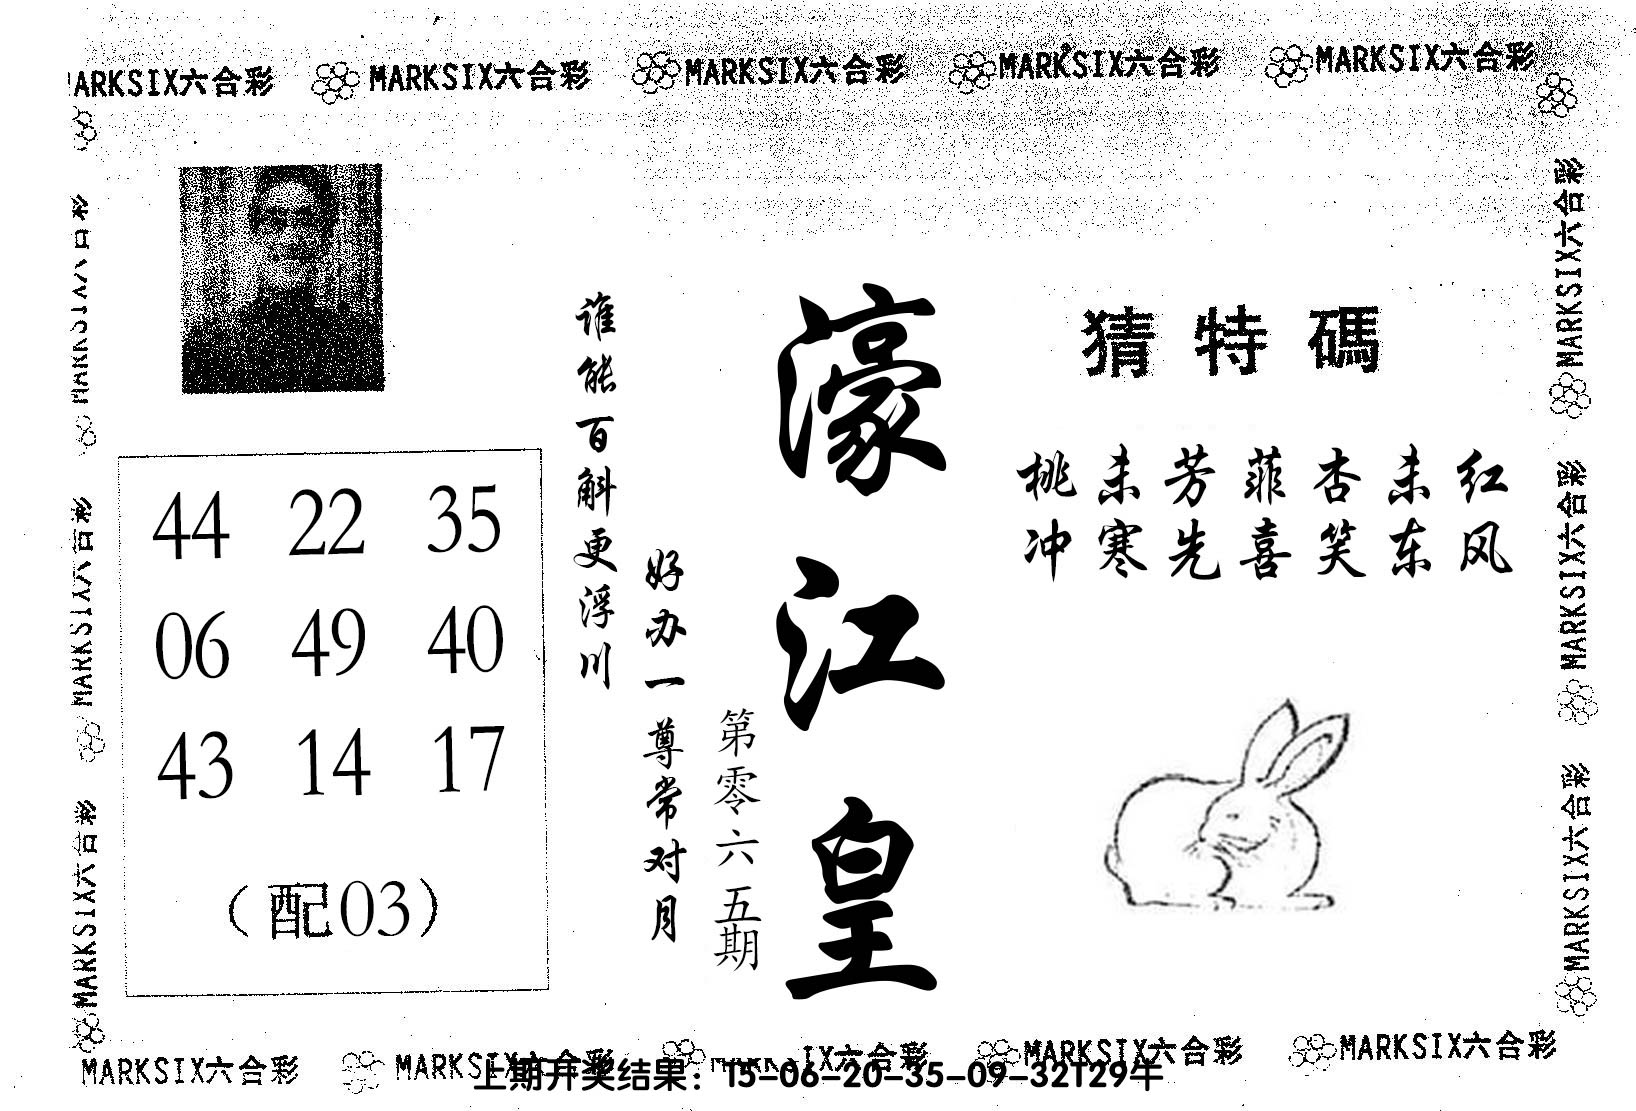 MARKSIX六合彩 MARKSIX六合彩 MARKSIX六合彩 MARKSIX六合彩 MARKSIX六合彩
猜特碼
桃未芳菲杏未红
冲寒先喜笑东风
濠江皇
第零六五期
谁能百斛更浮川
好办一尊常对月
44 22 35
06 49 40
43 14 17
（配03）
MARKSIX六合彩
MARKSIX六合彩
MARKSIX六合彩
MARKSIX六合彩
MARKSIX六合彩
MARKSIX六合彩
MARKSIX六合彩 MARKSIX六合彩 MARKSIX六合彩 MARKSIX六合彩 MARKSIX六合彩
上期开奖结果：15-06-20-35-09-32T29牛